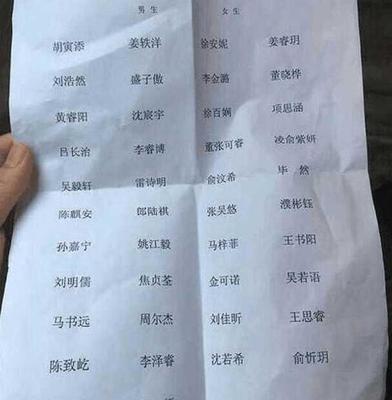 男生 女生
胡寅添 姜轶洋 徐安妮 姜睿玥
刘浩然 盛子傲 李金潞 董晓桦
黄睿阳 沈宸宇 徐百娴 项思涵
吕长治 李睿博 董张可睿 凌俞紫妍
吴毅轩 雷诗明 俞汶希 毕然
陈麒安 郎陆祺 张吴悠 濮彬钰
孙嘉宁 姚江毅 马梓菲 王书阳
刘明儒 焦贞荃 金可诺 吴若语
马书远 周尔杰 刘佳昕 王思睿
陈致屹 李泽睿 沈若希 俞忻玥